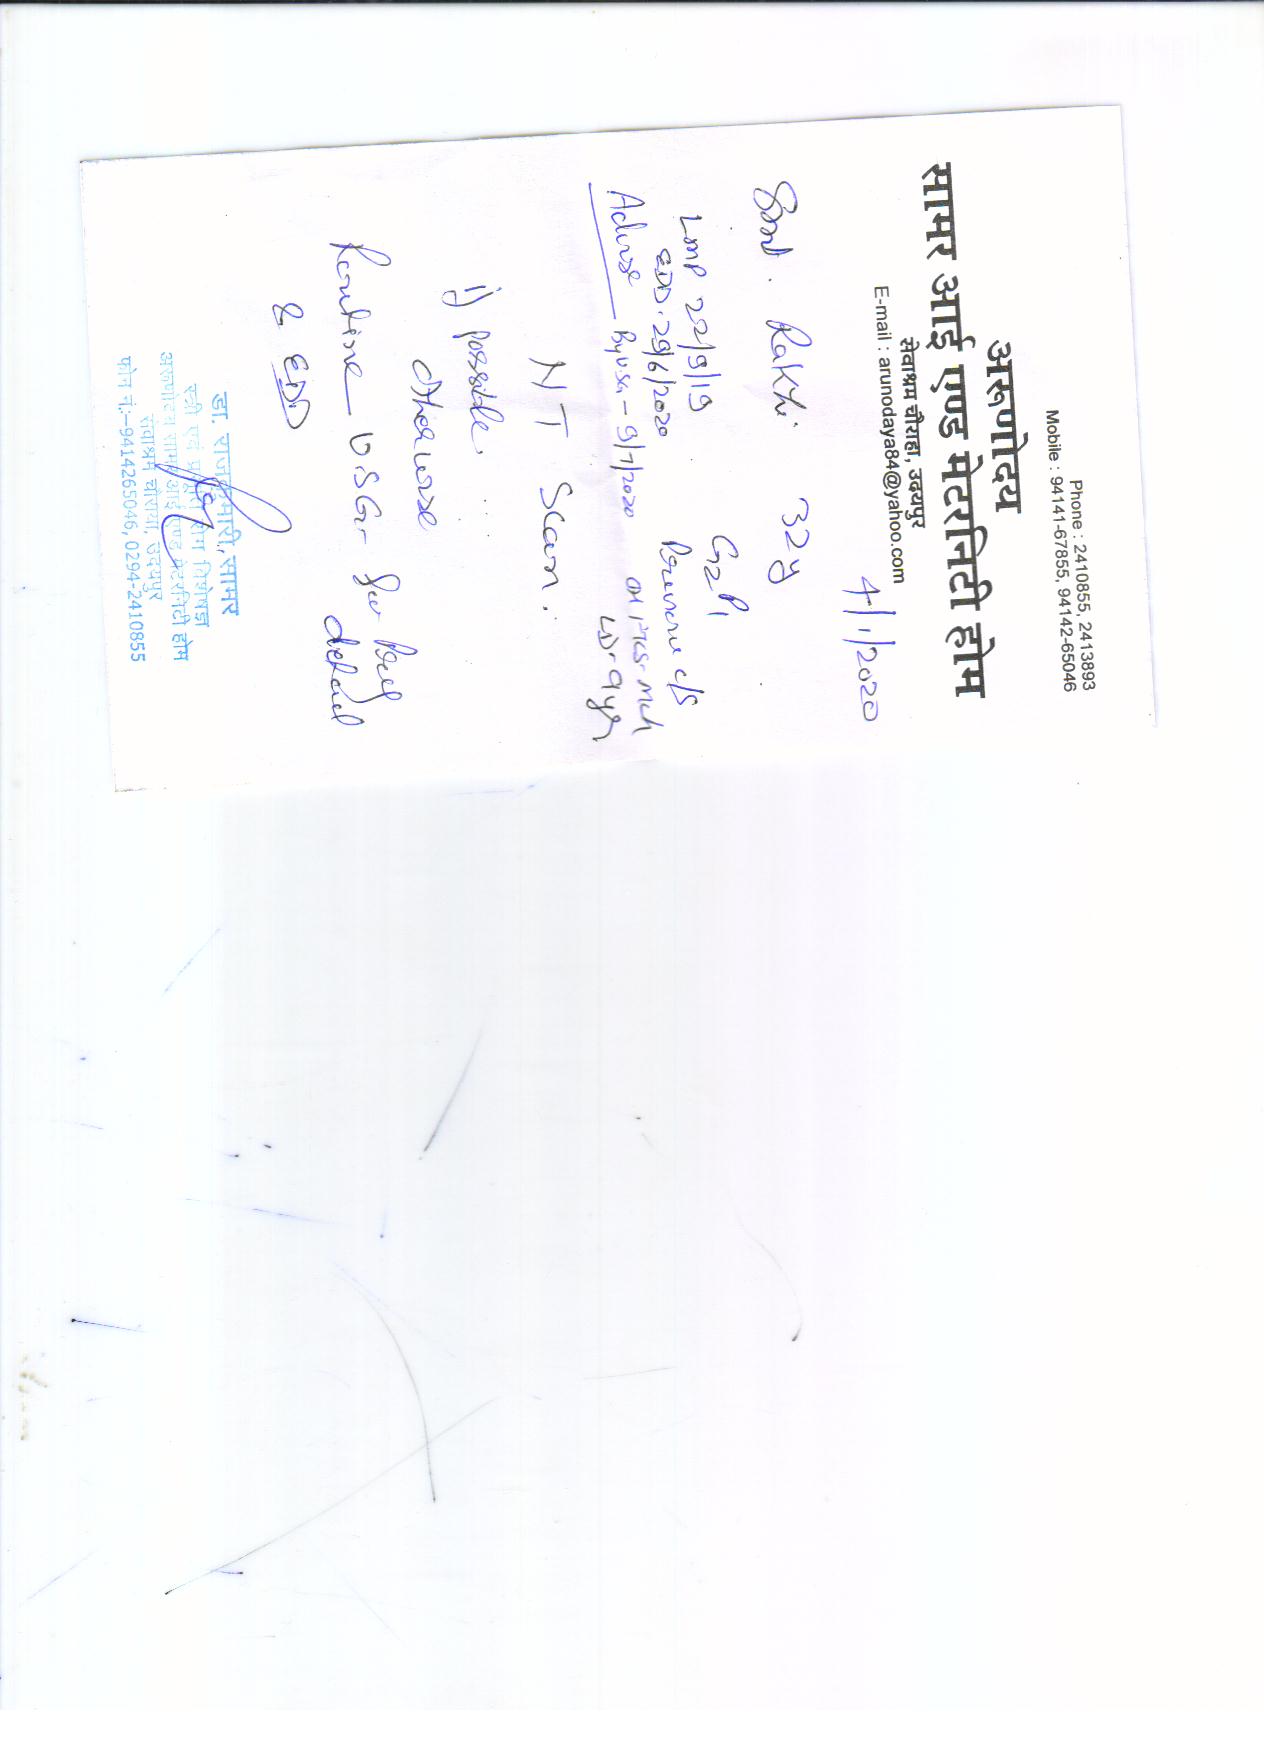 Phone : 2410855, 2413893
Mobile : 94141-67855, 94142-65046
अरूणोदय
सामर आई एण्ड मेटरनिटी होम
सेवाश्रम चौराहा, उदयपुर
E-mail : arunodaya84@yahoo.com
4/1/2020
Smt. Rakhi 32y
G2P1
LMP 22/9/19 Previous c/s
EDD. 29/6/2020
By USG - 9/7/2020
Advise LD. 9 yr
NT Scan.
if possible,
otherwise
Routine USG for
& EDD
डा. राजकुमारी, सामर
स्त्री एवं प्रसूति रोग विशेषज्ञ
अरूणोदय सामर आई एण्ड मेटरनिटी होम
सेवाश्रम चौराया, उदयपुर
फोन नं.:-9414265046, 0294-2410855